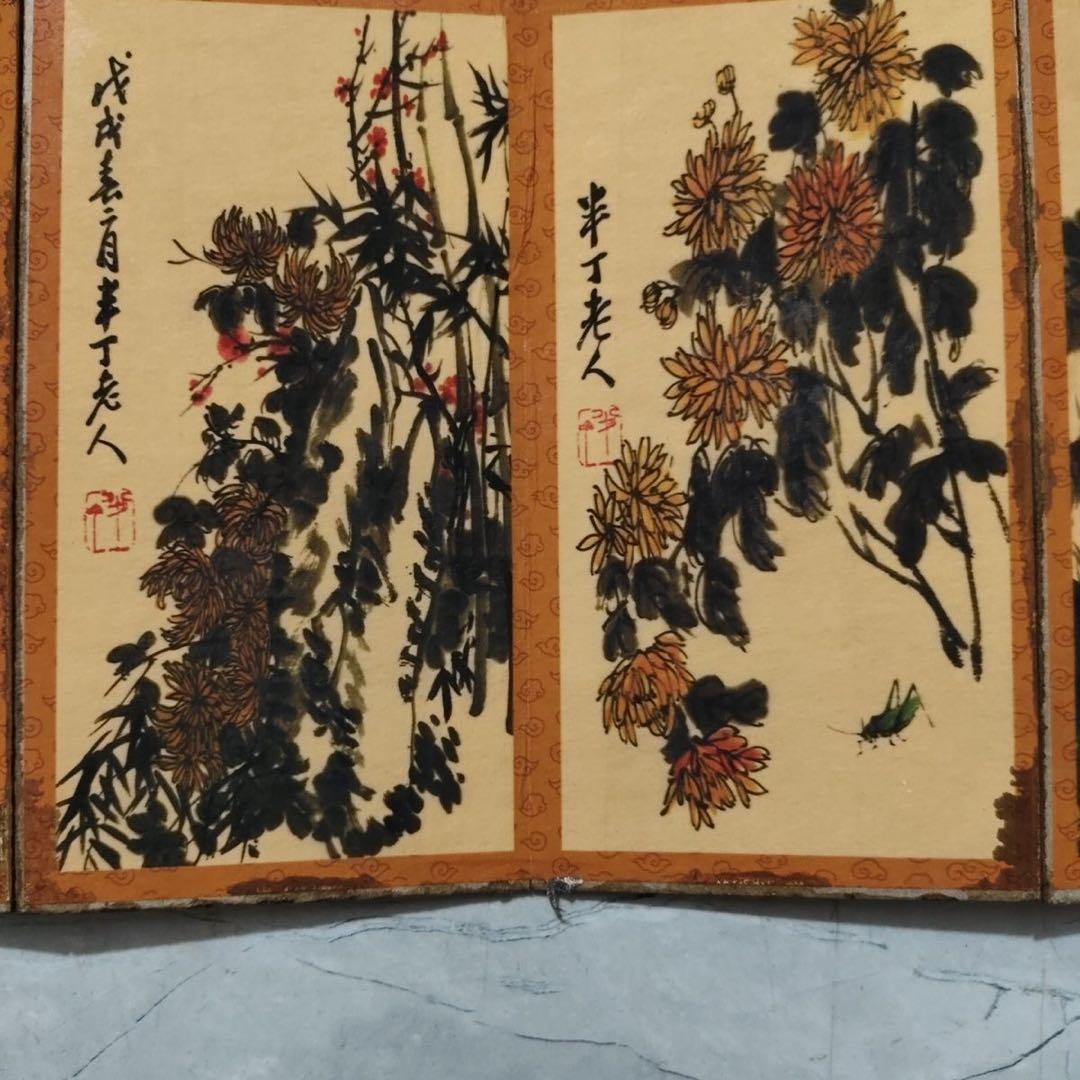 戊戌春二月半丁老人
半丁老人